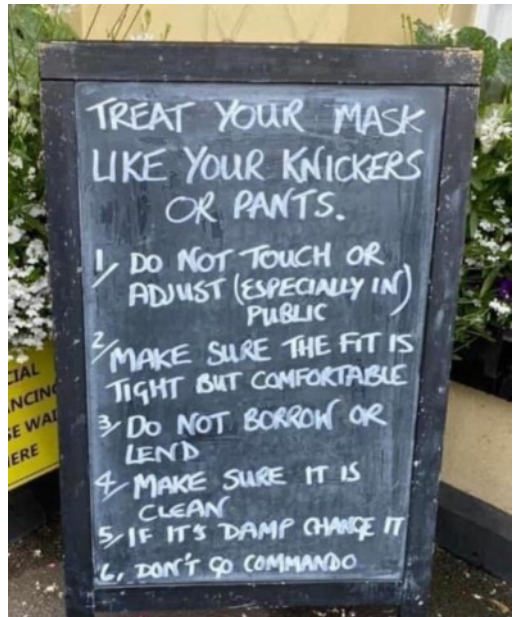 TREAT YOUR MASK
LIKE YOUR KNICKERS
OR PANTS.
1/ DO NOT TOUCH OR
ADJUST (ESPECIALLY IN)
PUBLIC
2/ MAKE SURE THE FIT IS
TIGHT BUT COMFORTABLE
3/ DO NOT BORROW OR
LEND
4/ MAKE SURE IT IS
CLEAN
5/ IF IT'S DAMP CHANGE IT
6, DON'T GO COMMANDO
CIAL
NCING
SE WAI
ERE